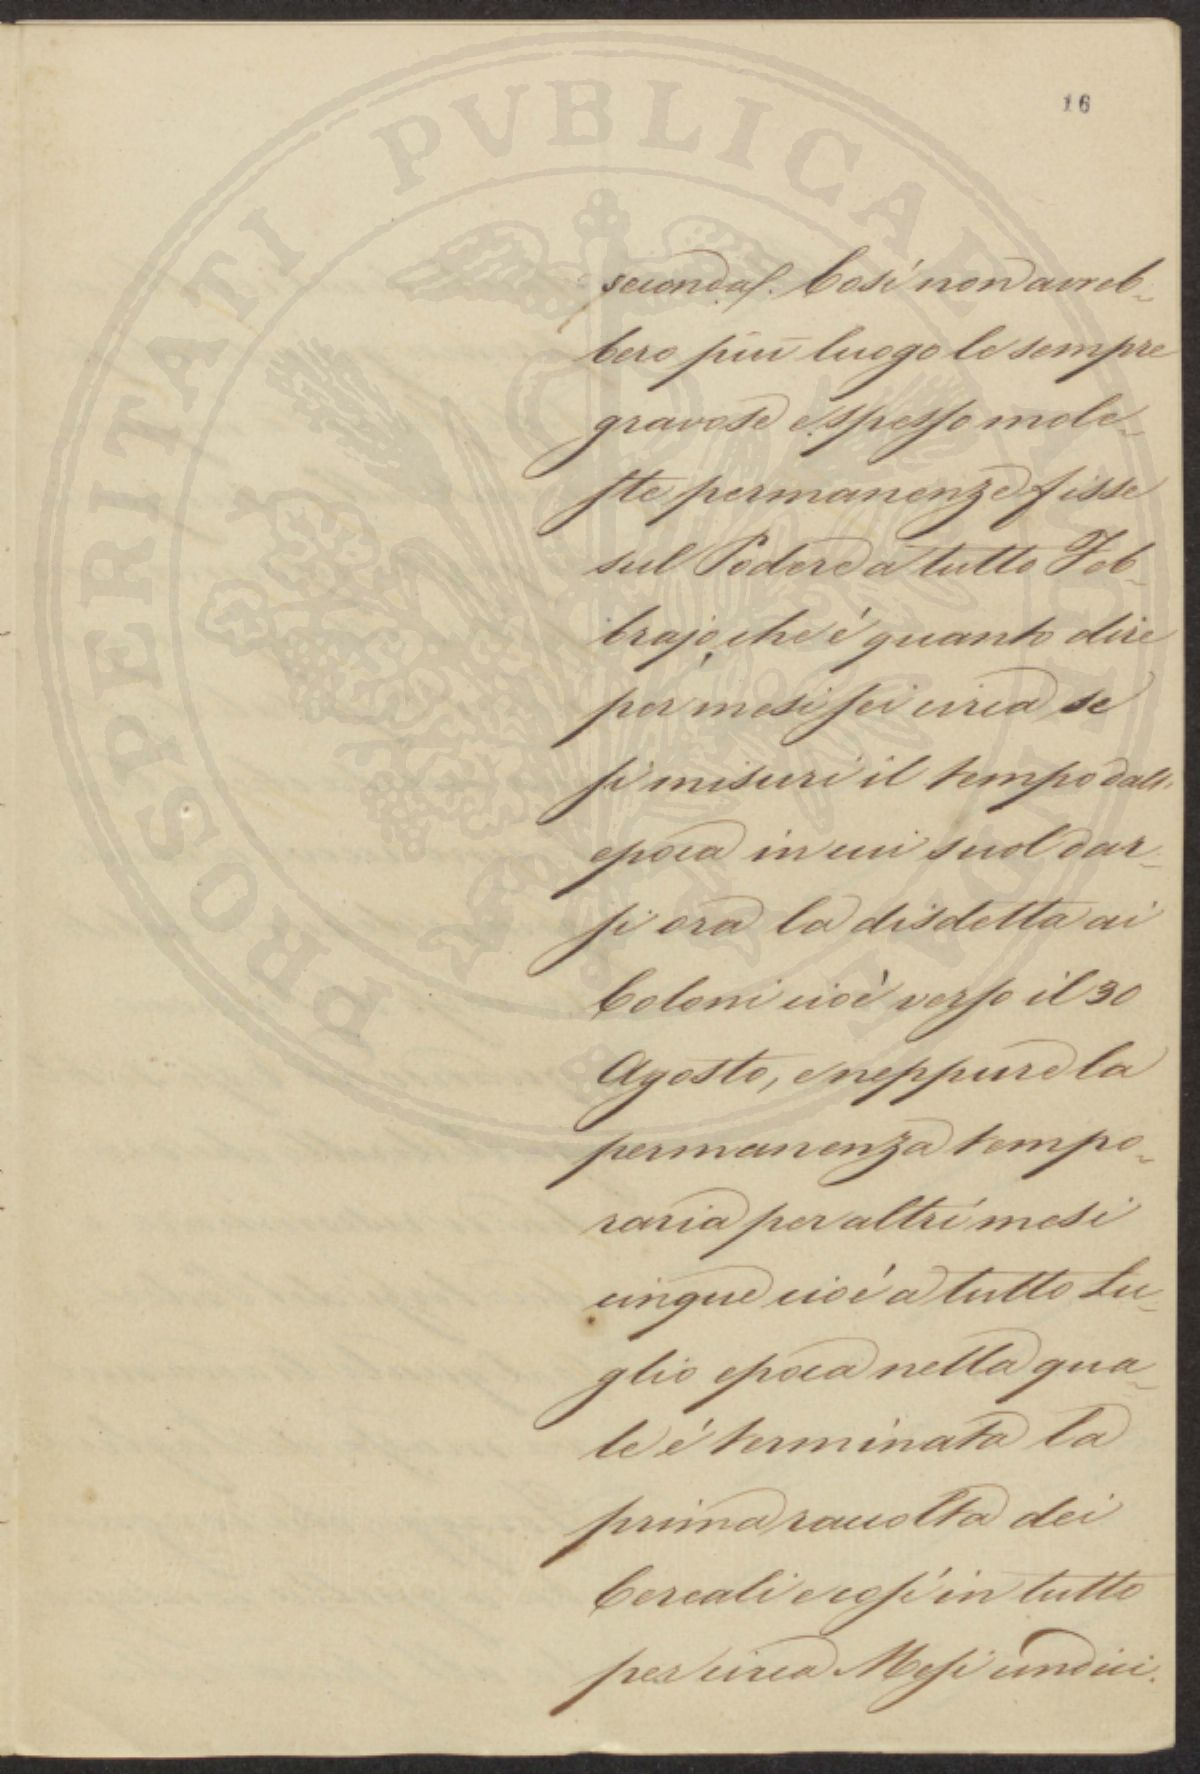 16
PROSPERITATI PUBLICAE
seconda). Così non avreb-
bero più luogo le sempre
gravose e spesso mole-
ste permanenze fisse
sul Podere a tutto Feb-
brajo, che è quanto dire
per mesi sei circa se
si misuri il tempo dall'
epoca in cui suol dar-
si ora la disdetta ai
Coloni cioè verso il 30
Agosto, e neppure la
permanenza tempo-
raria per altri mesi
cinque cioè a tutto Lu-
glio epoca nella qua-
le è terminata la
prima raccolta dei
Cereali e così in tutto
per circa Mesi undici.